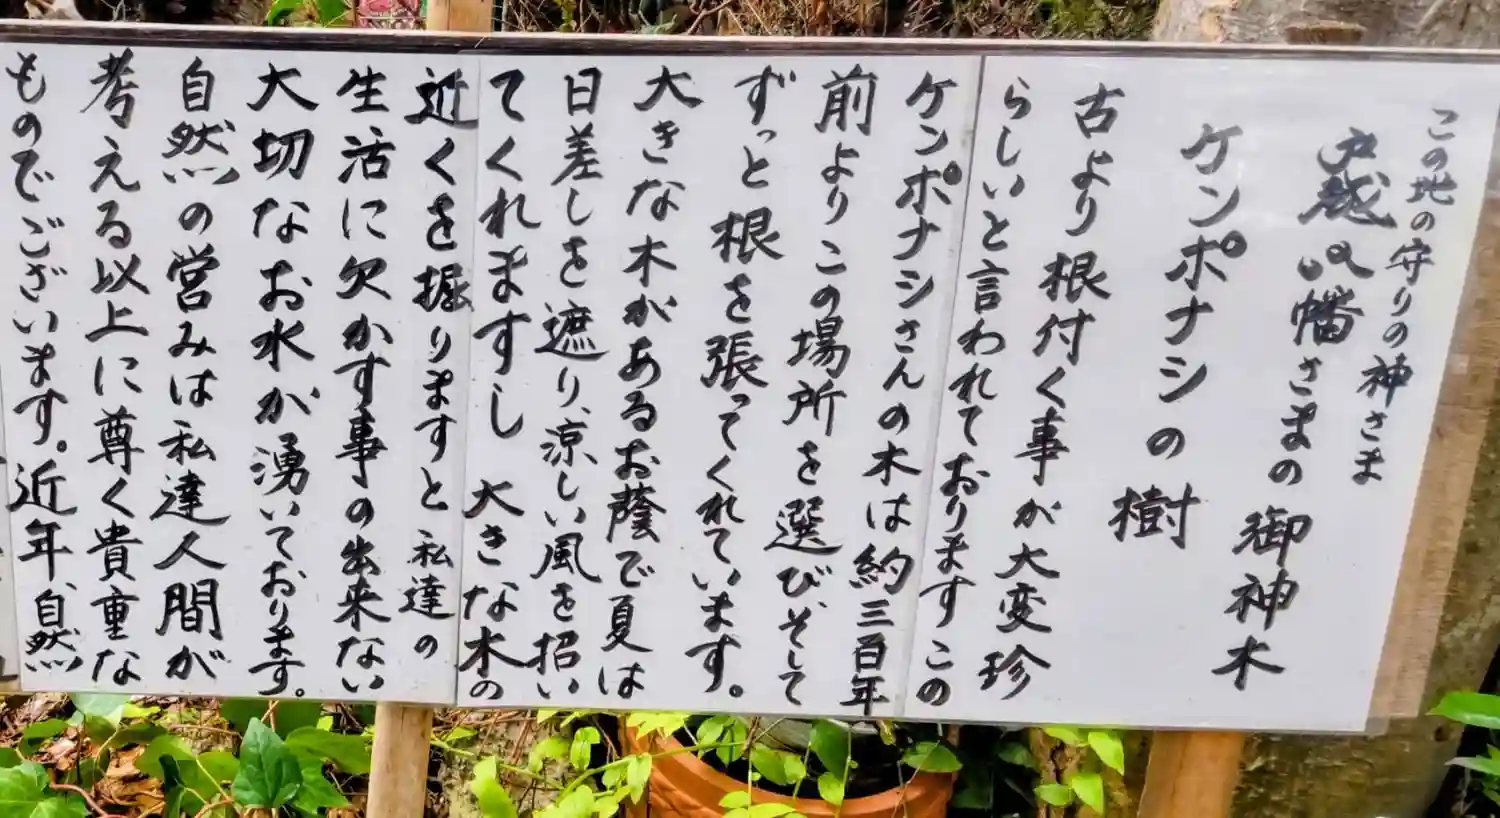 この地の守りの神さま
戸越八幡さまの御神木
ケンポナシの樹
古より根付く事が大変珍
らしいと言われておりますこの
ケンポナシさんの木は約三百年
前よりこの場所を選びそして
ずっと根を張ってくれています。
大きな木があるお蔭で夏は
日差しを遮り、涼しい風を招い
てくれますし 大きな木の
近くを掘りますと私達の
生活に欠かす事の出来ない
大切なお水が湧いております。
自然の営みは私達人間が
考える以上に尊く貴重な
ものでございます。近年、自然